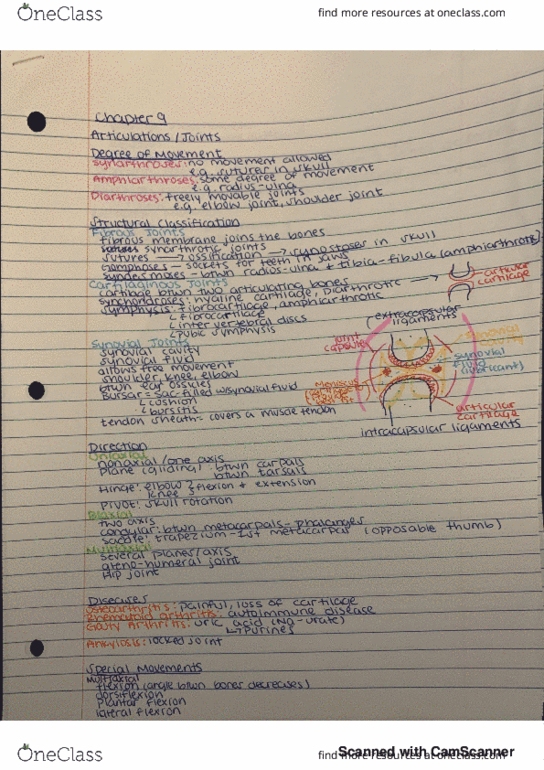 OneClass
find more resources at oneclass.com
Chapter 9
Articulations / Joints
Degree of Movement
synarthroses: no movement allowed
e.g. sutures in skull
Amphiarthroses: some degree of movement
e.g. radius-ulna
Diarthroses: freely movable joints
e.g. elbow joint, shoulder joint
Structural Classification
Fibrous Joints
fibrous membrane joins the bones
synarthrotic joints
sutures → ossification → synostoses in skull
Gomphoses - sockets for teeth in jaws
syndesmoses - btwn radius-ulna + tibia-fibula (amphiarthrotic)
Cartilaginous Joints
cartilage btwn two articulating bones
synchondroses: hyaline cartilage, Diarthrotic
symphysis: fibrocartilage, amphiarthrotic
fibrocartilage
intervertebral discs
pubic symphysis
articular
cartilage
Synovial Joints
synovial cavity
synovial fluid
allows free movement
shoulder, knee, elbow
btwn ear ossicles
Bursar = sac-filled w/synovial fluid
cushion
bursitis
tendon sheath - covers a muscle tendon
extracapsular
ligaments
joint
capsule
synovial
cavity
synovial
fluid
(lubricant)
Meniscus
articular
cartilage
intracapsular ligaments
Direction
Uniaxial
nonaxial/one axis
Plane (gliding): btwn carpals
btwn tarsals
Hinge: elbow } flexion + extension
knee
Pivot: skull rotation
Biaxial
two axis
condylar: btwn metacarpals-phalanges
saddle: trapezium-1st metacarpal (opposable thumb)
Multiaxial
several planes/axis
gleno-humeral joint
Hip joint
Diseases
Osteoarthritis: painful, loss of cartilage
Rhematoid arthritis: autoimmune disease
Gouty Arthritis: uric acid (Na-urate)
↳purines
Ankylosis: locked joint
Special Movements
Multiaxial
flexion (angle btwn bones decreases)
dorsiflexion
plantar flexion
lateral flexion
OneClass
find more resources at oneclass.com
Scanned with CamScanner